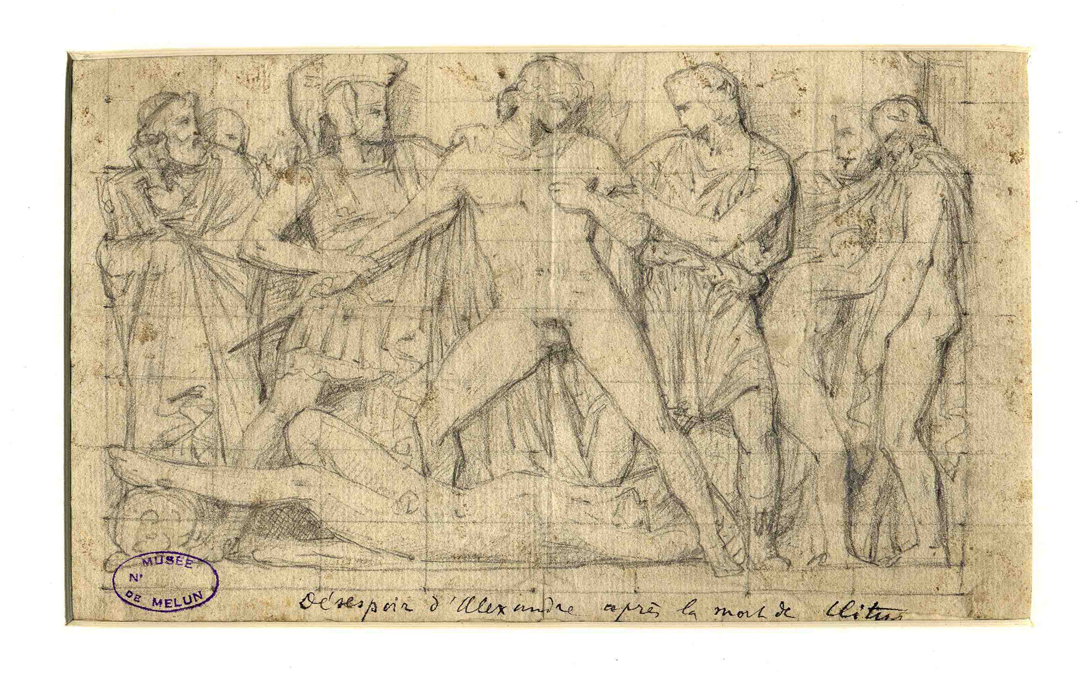 MUSÉE
N°
DE MELUN
Désespoir d'Alexandre après la mort de Clitus